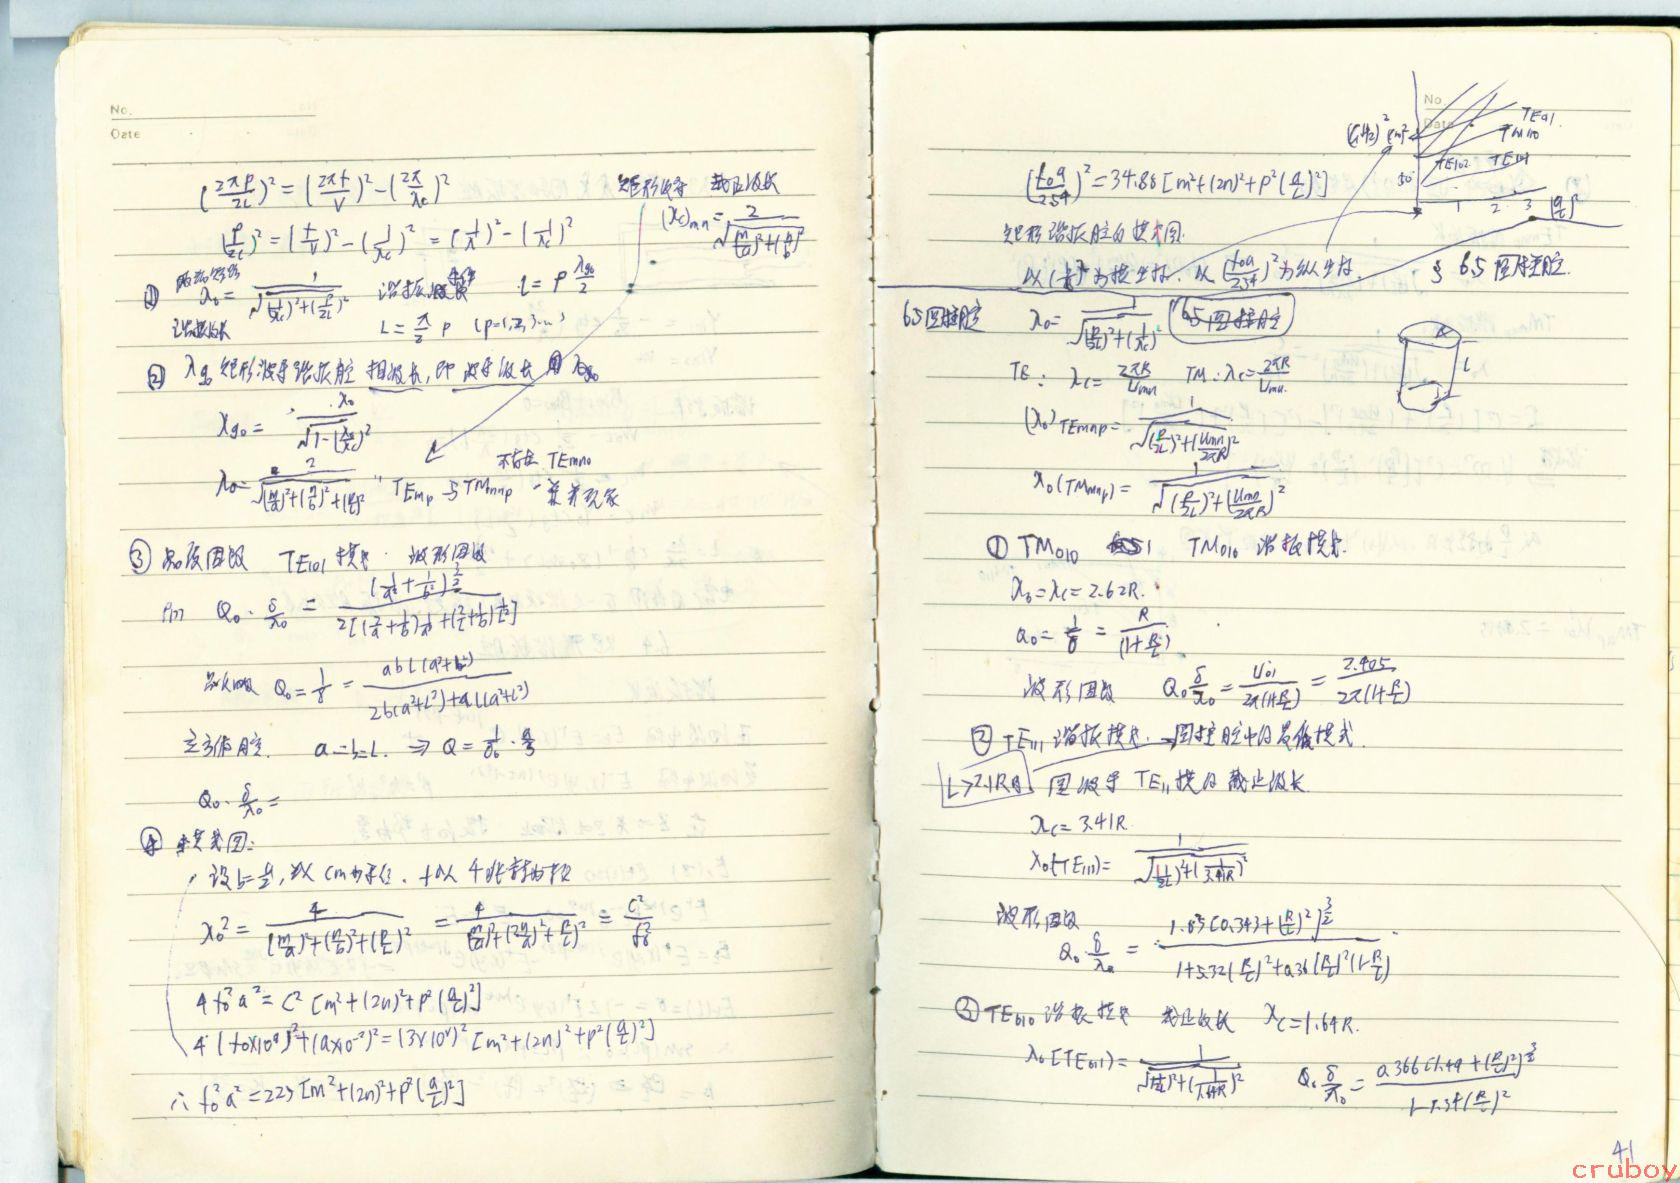 No.
Date
(2πp/2L)² = (2πf/V)² − (2π/λc)²
矩形波导 截止波长
(p/2L)² = (f/V)² − (1/λc)² = (1/λ)² − (1/λc)²
(λc)mn = 2/√((m/a)²+(n/b)²)
① λ₀ = 1/√((1/λc)²+(p/2L)²) 谐振条件 L = p λg₀/2
谐振波长 L = π/2 p (p=1,2,3…)
② λg₀ 矩形波导谐振腔 相波长, 即 波导波长 λg₀
λg₀ = λ₀/√(1−(λ₀/λc)²)
不存在 TEmn0
λ₀ = 2/√((m/a)²+(n/b)²+(p/L)²) TEmnp 与 TMmnp 兼并现象
③ 品质因数 TE101 模式. 波形因数
Q₀·δ/λ₀ = (1/a²+1/L²)^(3/2) / 2[(2/a+1/b)1/a²+(2/L+1/b)1/L²]
Q₀ = 1/δ = abL(a²+L²) / 2b(a³+L³)+aL(a²+L²)
立方体腔. a=b=L. ⇒ Q = 1/δ · a/3
Q₀·δ/λ₀ =
④ 模式图:
设 b=a/2, 以 cm 为单位.
λ₀² = 4/((m/a)²+(n/b)²+(p/L)²) = 4/((m/a)²+(2n/a)²+(p/L)²) = C²/f₀²
4f₀²a² = C²[m²+(2n)²+p²(a/L)²]
4(f₀×10⁹)²+(a×10⁻²)² = (3×10⁸)²[m²+(2n)²+p²(a/L)²]
∴ f₀²a² = 225[m²+(2n)²+p²(a/L)²]
No.
Date
(GHz)² cm²
TE011
TM110
TE102 TE101
50
1 2 3 (a/L)²
(f₀a/2.54)² = 34.88[m²+(2n)²+p²(a/L)²]
矩形谐振腔的模式图.
以(a/L)²为横坐标, 以(f₀a/2.54)²为纵坐标.
§ 6.5 圆柱腔.
6.5 圆柱腔 λ₀ = 1/√((p/2L)²+(1/λc)²) 6.5 圆柱腔
R
L
TE: λc = 2πR/Umn TM: λc = 2πR/Umn
(λ₀)TEmnp = 1/√((p/2L)²+(Umn/2πR)²)
λ₀(TMmnp) = 1/√((p/2L)²+(Umn/2πR)²)
① TM010 TM010 谐振模式.
λ₀=λc=2.62R.
Q₀ = 1/δ = R/(1+R/L)
波形因数 Q₀ δ/λ₀ = U01/2π(1+R/L) = 2.405/2π(1+R/L)
② TE111 谐振模式. → 圆柱腔中的最低模式.
L>2.1R时 圆波导 TE11 模的截止波长
λc = 3.41R
λ₀(TE111) = 1/√((1/2L)²+(1/3.41R)²)
波形因数
Q₀ δ/λ₀ = 1.03[0.343+(R/L)²]^(3/2) / 1+5.32(R/L)²+0.36(R/L)²(1−R/L)
③ TE010 谐振模式 截止波长 λc=1.64R.
λ₀[TE011] = 1/√((1/2L)²+(1/1.64R)²) Q₀ δ/λ₀ = 0.366[1.49+(R/L)²]^(3/2) / 1+1.34(R/L)²
41
cruboy